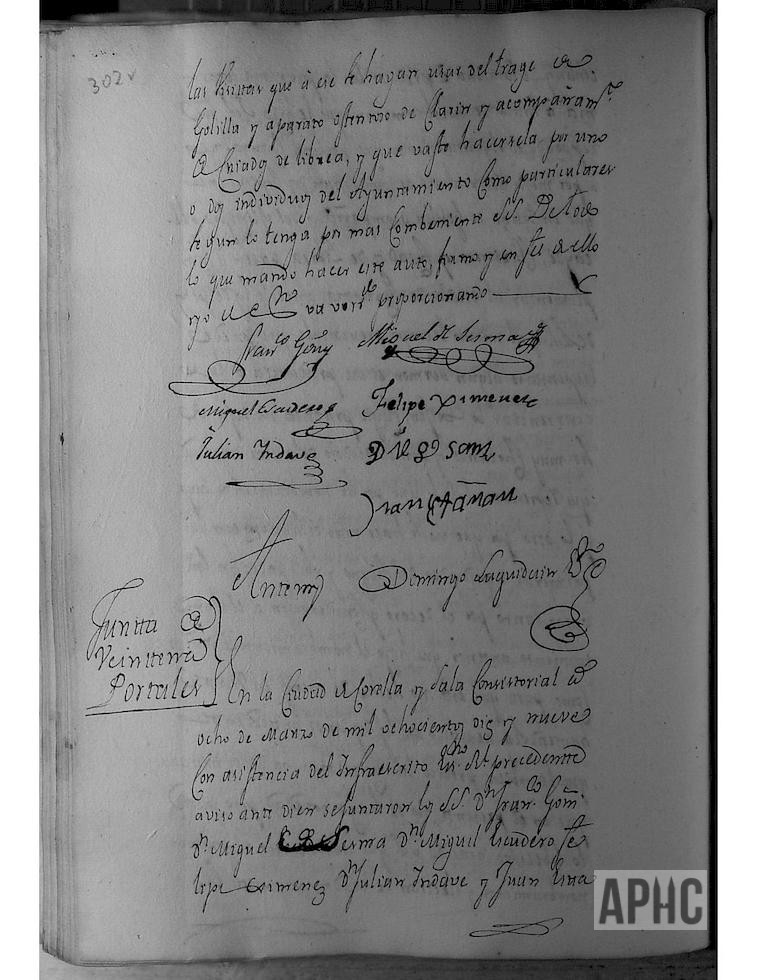 302v
las Visitas que à ese se hayan usar del trage de
Golilla y aparato ostentoso de Clarin y acompañamto
de Criados de librea, y que vaste hacersela por uno
o dos individuos del Ayuntamiento como particulares
segun lo tenga por mas combeniente SS. De todo
lo que mando hacer este auto, firmo, y en fee de ello
yo el Esno
Franco Goñy Miguel de Sesma
Miguel Escudero Felipe Ximenez
Julian Yndave Diego Sanz
Juan
Antemi Domingo Laquidain Esno
Juntta de
Veintena
Portales
En la Ciudad de Corella y Sala Consistorial a
ocho de Marzo de mil ochocientos diez y nueve
Con asistencia del Infraescrito Esno Rl precedente
aviso ante diem se juntaron los SS. Dn Franco Goñi
Dn Miguel de Sesma Dn Miguel Escudero Fe
lipe Ximenez Dn Julian Yndave y Juan
APHC